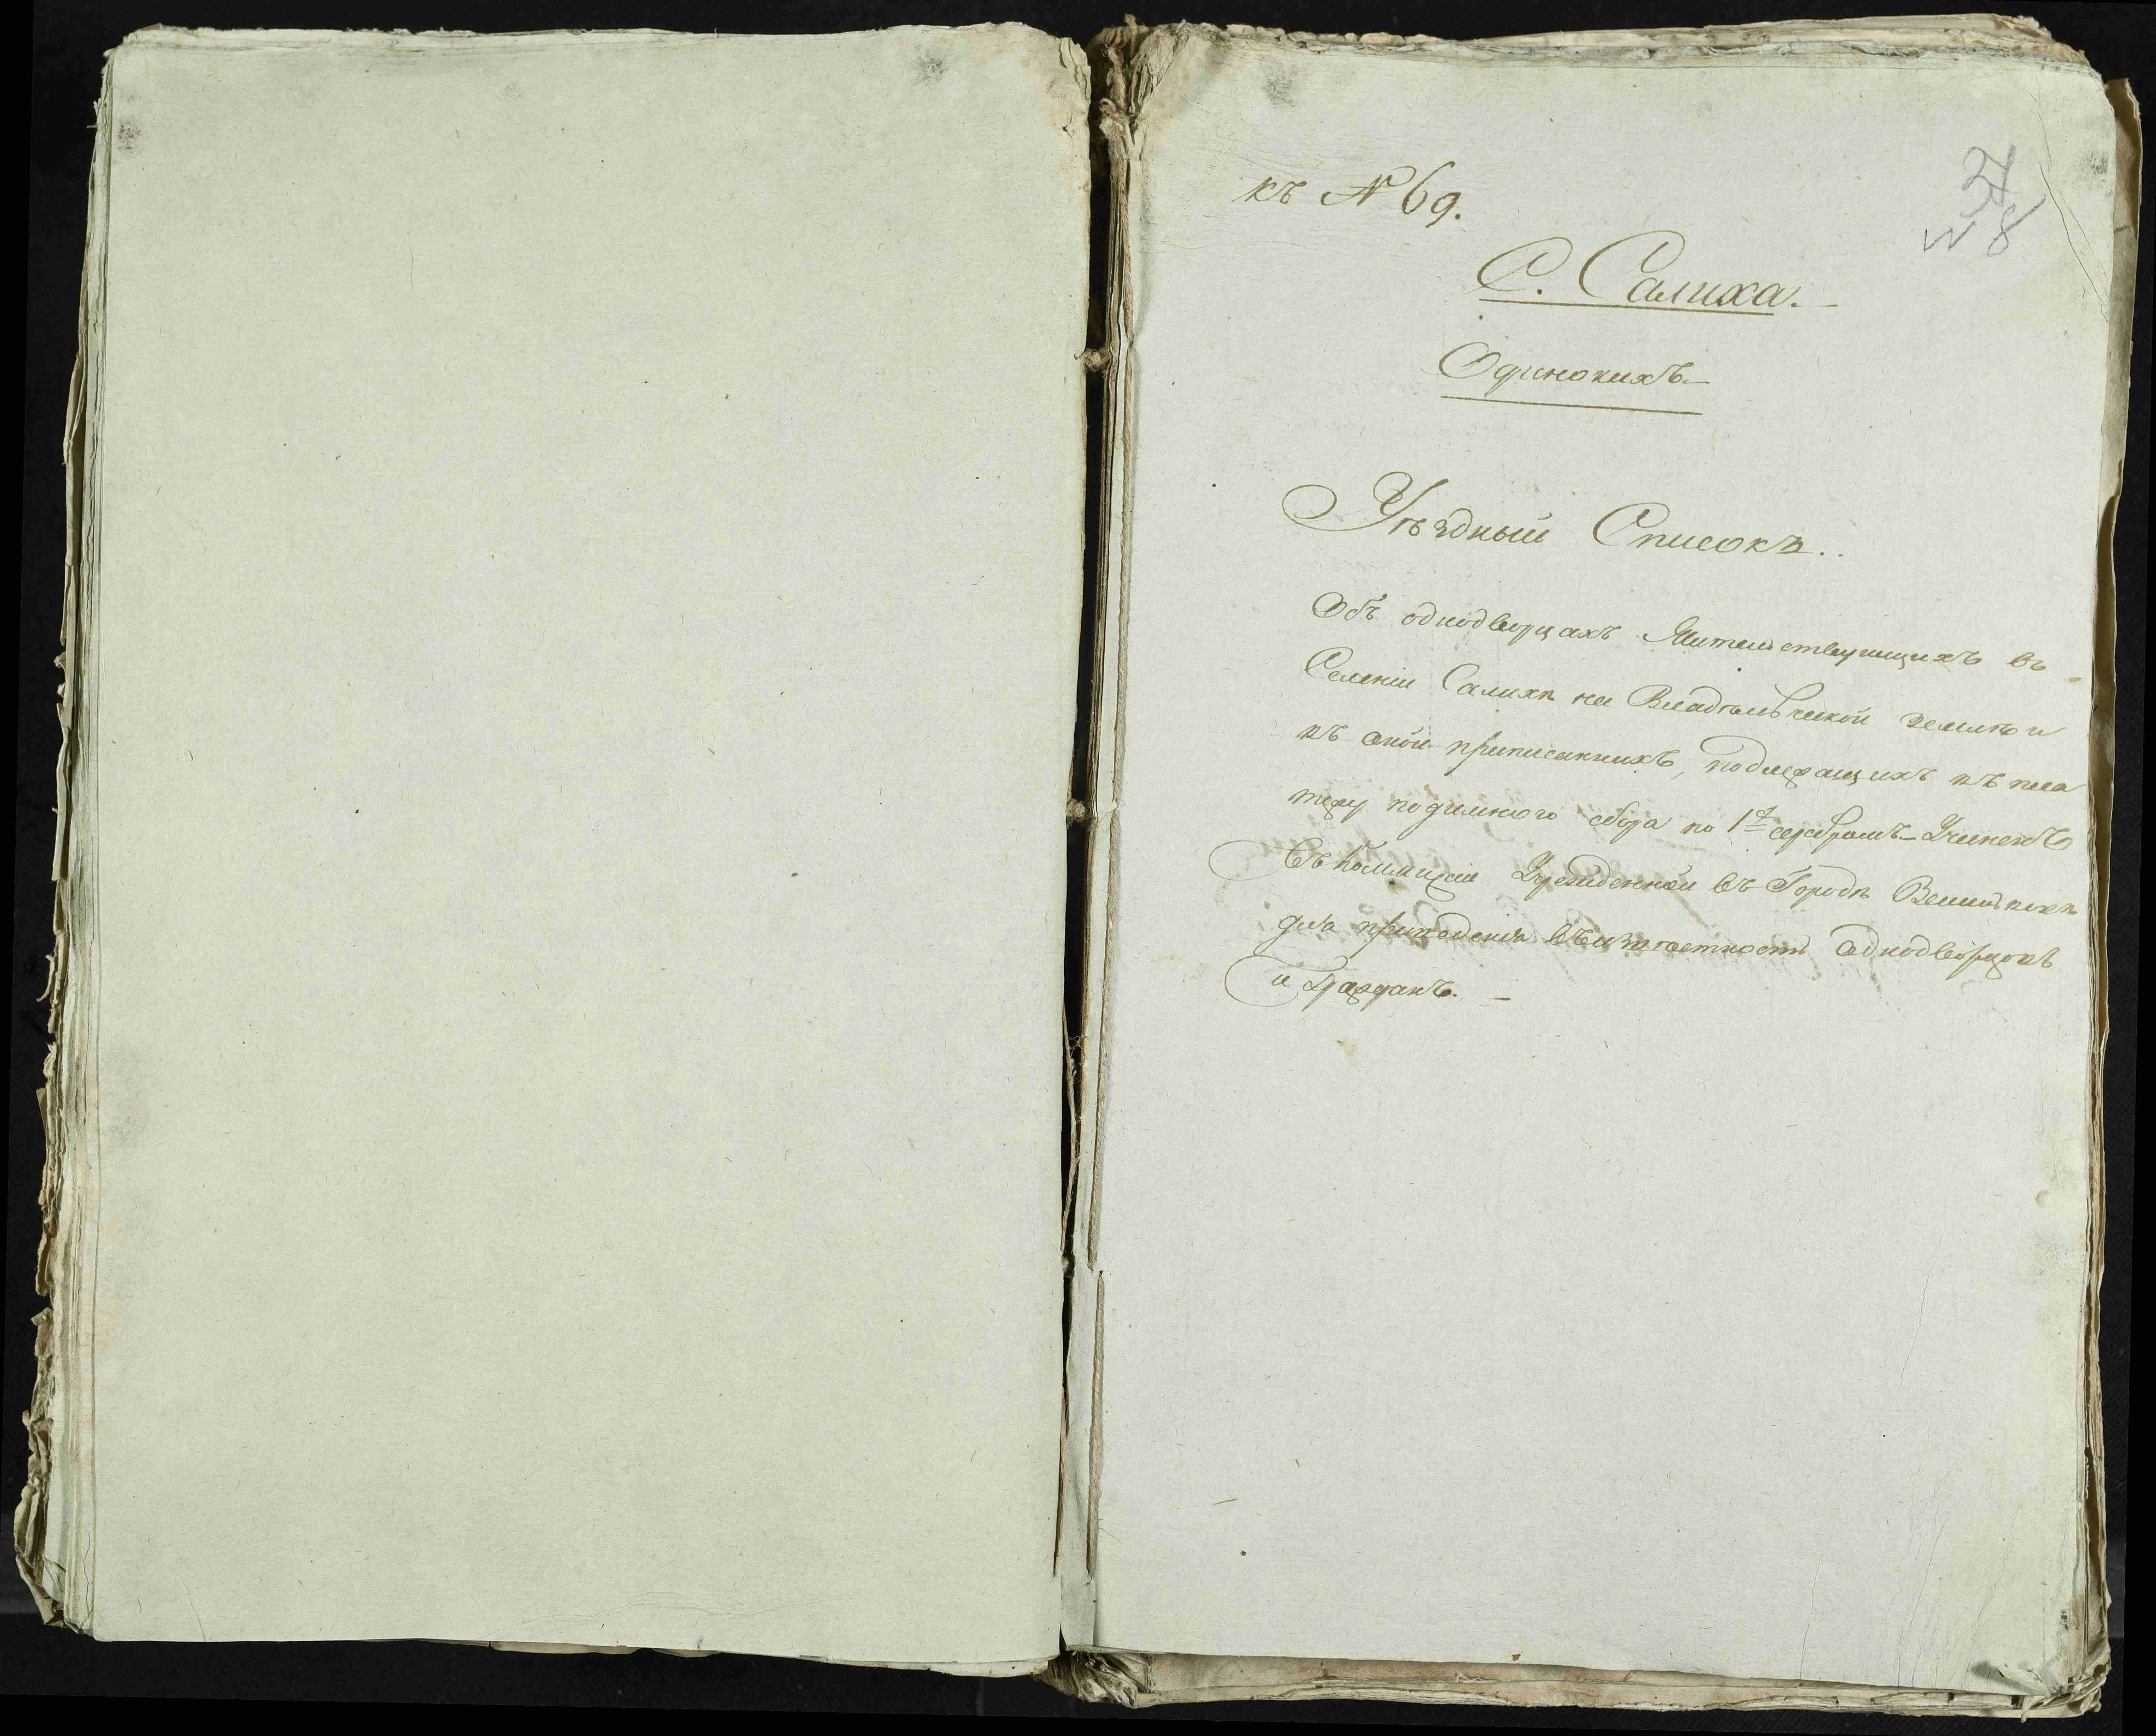 къ № 69.
37
8
С. Салиха.
Одинокихъ
Уѣздный Списокъ..
Объ однодворцахъ Жительствующихъ въ
Селеніи Салихѣ на Владѣльческой землѣ и
къ оной приписанныхъ, подлежащихъ къ пла
тежу подымнаго сбора по 1 серебромъ Учиненъ
Въ Коммиссіи Учрежденной въ Городѣ
для приведенія въ извѣстность однодворцовъ
и Гражданъ.